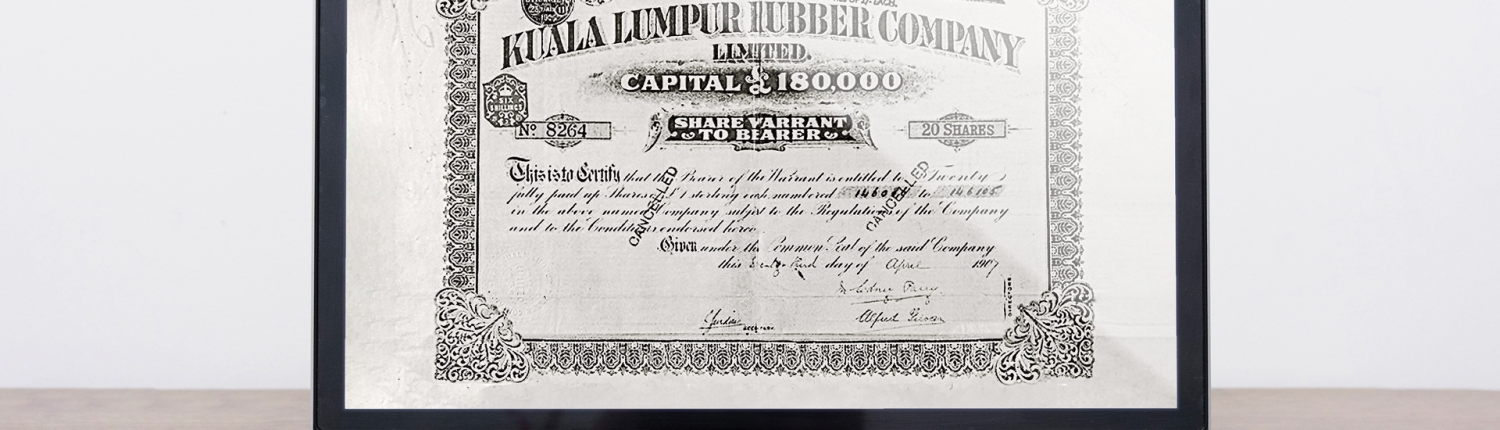 KUALA LUMPUR RUBBER COMPANY
LIMITED.
CAPITAL £180,000
SIX
SHILLINGS
No 8264
SHARE WARRANT
TO BEARER
20 SHARES
This is to Certify that the Bearer of this Warrant is entitled to Twenty
fully paid up Shares of £1 sterling each numbered to 146105
in the above named Company subject to the Regulations of the Company
and to the Conditions endorsed hereon
CANCELLED
CANCELLED
Given under the Common Seal of the said Company
this day of April 1907
Alfred